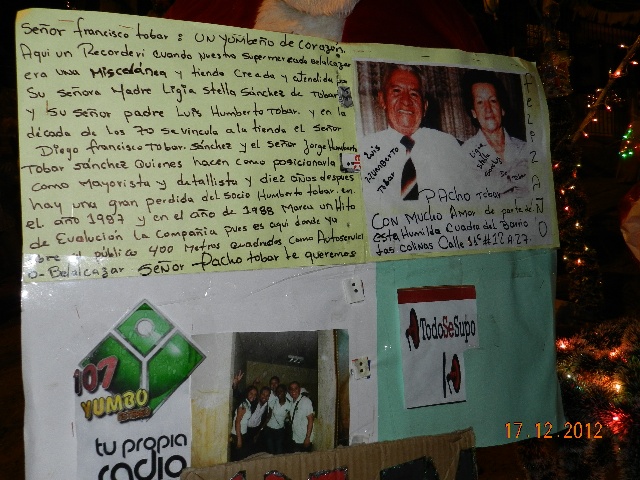 Señor francisco tobar: UN YUMBEÑO de Corazón.
Aqui un Recorderi cuando Nuestro Supermercado Belalcazar
era una Miscelánea y tienda Creada y atendida por
Su señora Madre Ligia Stella Sánchez de Tobar
y Su señor padre Luis Humberto Tobar. y en la
década de los 70 se vincula a la tienda el señor
Diego francisco Tobar. sánchez y el señor Jorge Humberto
Tobar Sánchez Quienes hacen como posicionarla
como Mayorista y detallista y diez años después
hay una gran perdida del socio Humberto tobar. en
el año 1987 y en el año de 1988 Marca un Hito
de Evolución La Compañia pues es aqui donde ya
al público 400 Metros quadrados como Autoservici
o-Belalcazar señor Pacho tobar te queremos
FELIZ AÑO
LUIS
HUMBERTO
Tobar
Ligia
Stella
PACHO Tobar
CON MUCHO AMOR de parte de
esta Humilda Cuadra del Barrio
Las Colinas Calle 15 #12A27.
107
YUMBO
tu propia
radio
TodoSeSupo
17.12.2012